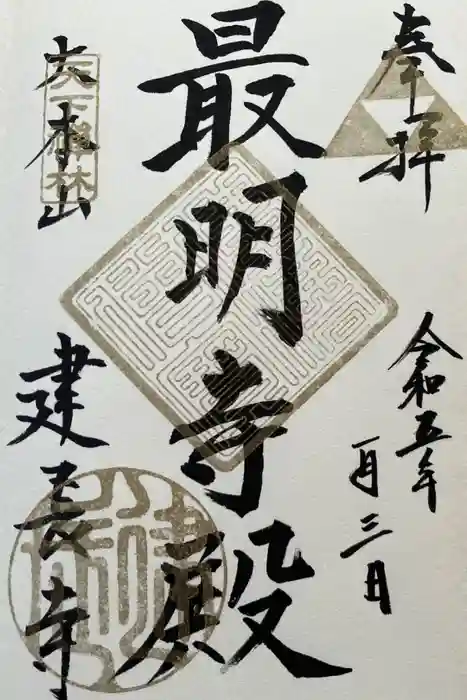 奉拝
令和五年
一月三日
最明寺殿
大本山
天下禅林
建長寺